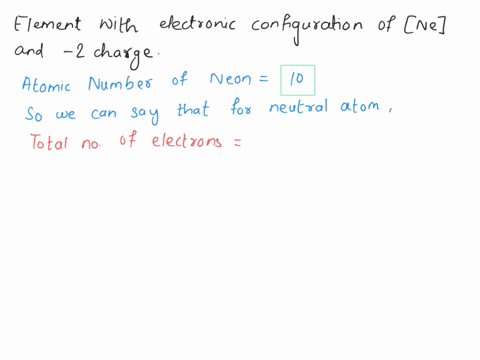 Element with electronic configuration of [Ne]
and -2 charge.
Atomic Number of Neon = 10
So we can say that for neutral atom,
Total no. of electrons =